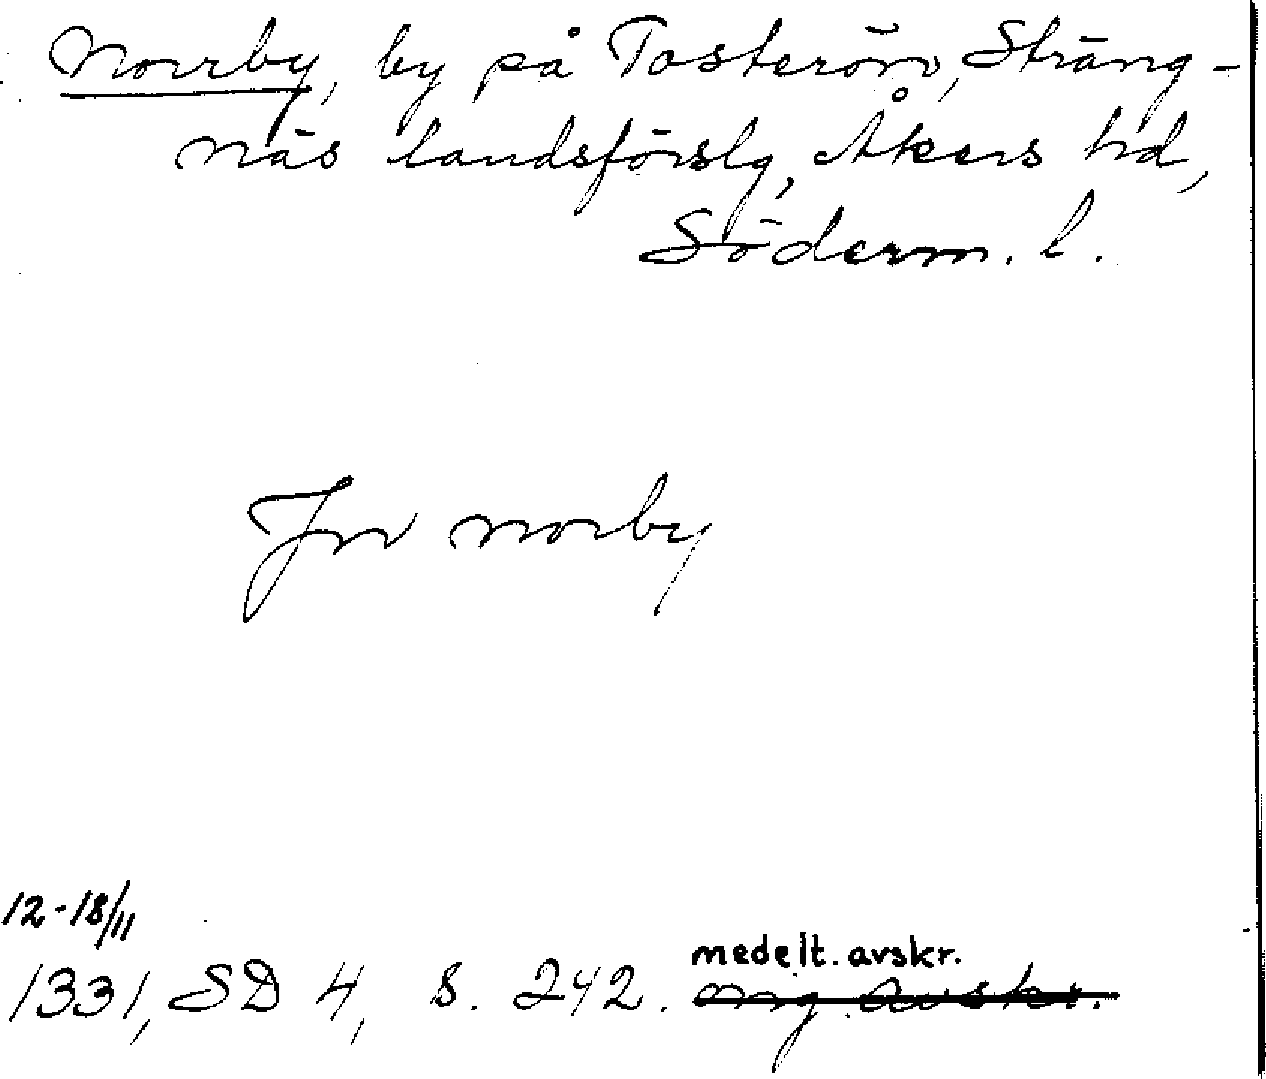 Norrby, by på Tosterön, Sträng-
näs landsförslg, Åkers hd,
Söderm. l.
Jn norby
12-18/11
medelt. avskr.
1331, SD 4, s. 242. orig. avskr.